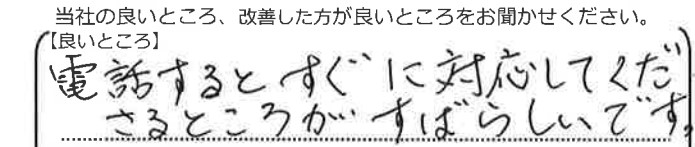 当社の良いところ、改善した方が良いところをお聞かせください。
【良いところ】
電話するとすぐに対応してくだ
さるところがすばらしいです。